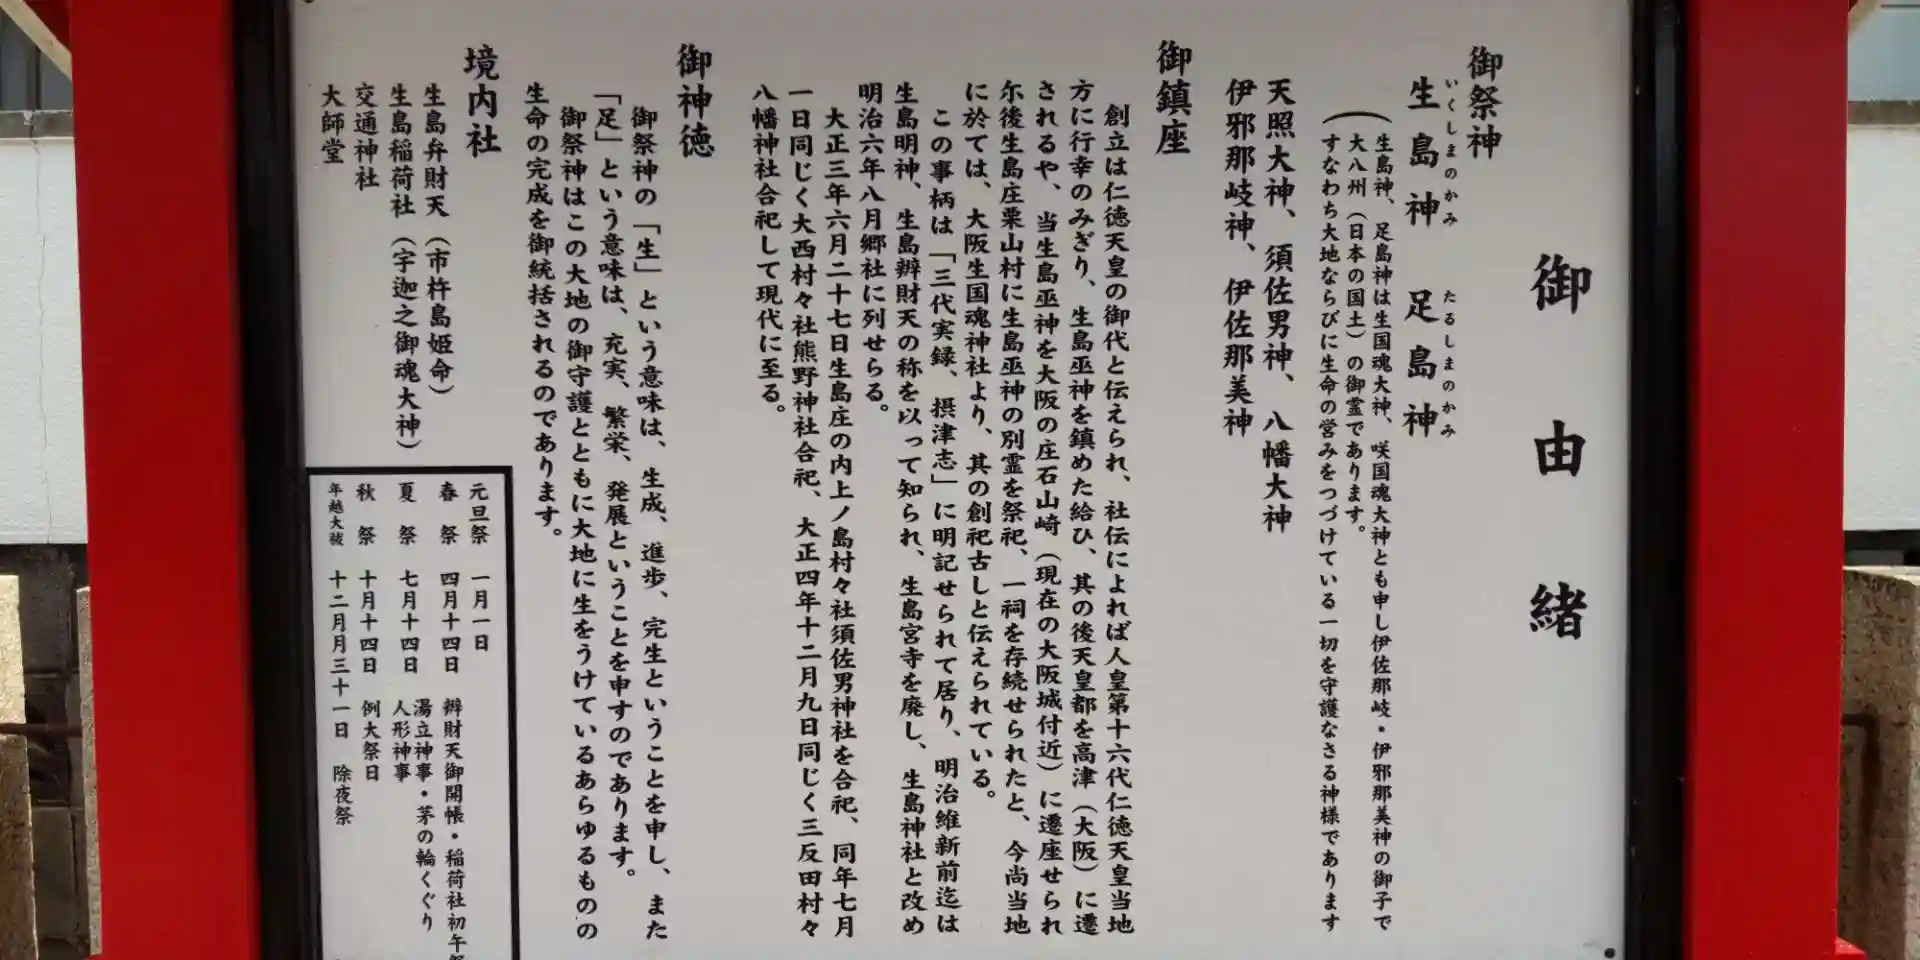 御由緒
御祭神
生島神 足島神
いくしまのかみ たるしまのかみ
(生島神、足島神は生国魂大神、咲国魂大神とも申し伊佐那岐・伊邪那美神の御子で
大八州(日本の国土)の御霊であります。
すなわち大地ならびに生命の営みをつづけている一切を守護なさる神様であります
天照大神、須佐男神、八幡大神
伊邪那岐神、伊佐那美神
御鎮座
創立は仁徳天皇の御代と伝えられ、社伝によれば人皇第十六代仁徳天皇当地
方に行幸のみぎり、生島巫神を鎮めた給ひ、其の後天皇都を高津(大阪)に遷
されるや、当生島巫神を大阪の庄石山崎(現在の大阪城付近)に遷座せられ
尓後生島庄栗山村に生島巫神の別霊を祭祀、一祠を存続せられたと、今尚当地
に於ては、大阪生国魂神社より、其の創祀古しと伝えられている。
この事柄は「三代実録、摂津志」に明記せられて居り、明治維新前迄は
生島明神、生島辨財天の称を以って知られ、生島宮寺を廃し、生島神社と改め
明治六年八月郷社に列せらる。
大正三年六月二十七日生島庄の内上ノ島村々社須佐男神社を合祀、同年七月
一日同じく大西村々社熊野神社合祀、大正四年十二月九日同じく三反田村々
八幡神社合祀して現代に至る。
御神徳
御祭神の「生」という意味は、生成、進歩、完生ということを申し、また
「足」という意味は、充実、繁栄、発展ということを申すのであります。
御祭神はこの大地の御守護とともに大地に生をうけているあらゆるものの
生命の完成を御統括されるのであります。
境内社
生島弁財天(市杵島姫命)
生島稲荷社(宇迦之御魂大神)
交通神社
大師堂
元旦祭 一月一日
春祭 四月十四日 辨財天御開帳・稲荷社初午祭
夏祭 七月十四日 湯立神事・茅の輪くぐり
人形神事
秋祭 十月十四日 例大祭日
年越大祓 十二月月三十一日 除夜祭